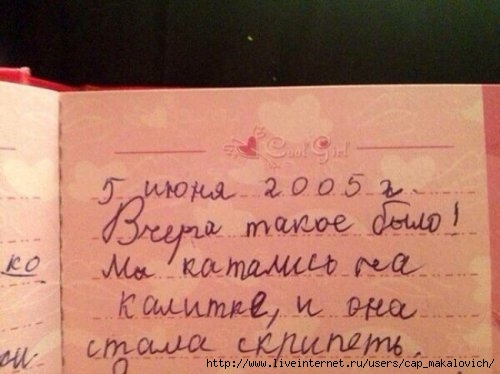 Cool Girl
5 июня 2005 г.
Вчера такое было!
Мы катались на
ко
калитке, и она
стала скрипеть.
http://www.liveinternet.ru/users/cap_makalovich/